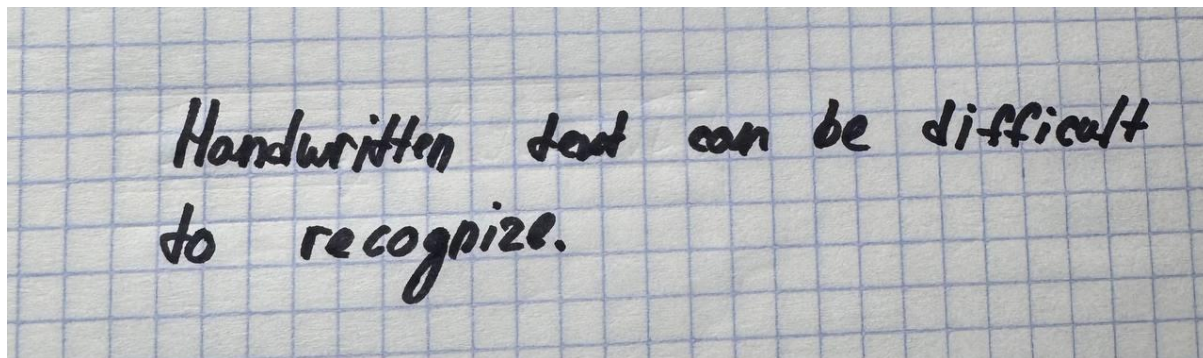 Handwritten text can be difficult
to recognize.